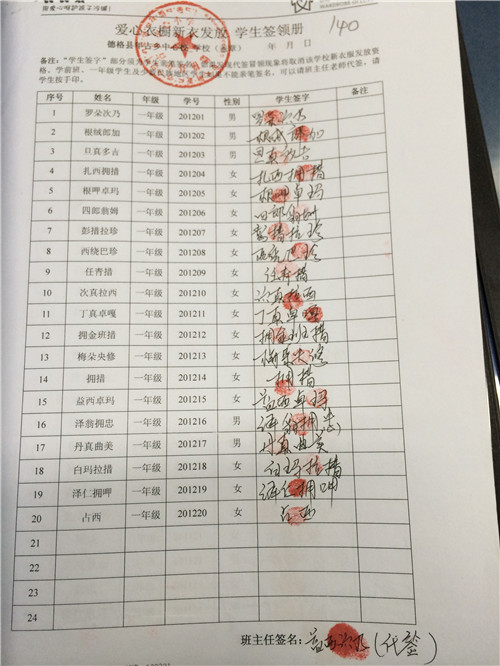 WARDROBE OF
爱心衣橱新衣发放 学生签领册
140
德格县 乡中心校 学校(盖章) 年 月 日
备注:“学生签字”部分须 取消该学校新衣颁发放资
格。学前班、一年级学生及 不能亲笔签名,可以请班主任老师代签,请
学生按手印。
序号 姓名 年级 学号 性别 学生签字 备注
1 罗朵次乃 一年级 201201 男 罗朵次乃
2 根绒郎加 一年级 201202 男 根绒郎加
3 旦真多吉 一年级 201203 男 旦真多吉
4 扎西拥措 一年级 201204 女 扎西拥措
5 根呷卓玛 一年级 201205 女 根呷卓玛
6 四郎翁姆 一年级 201206 女 四郎翁姆
7 彭措拉珍 一年级 201207 女 彭措拉珍
8 西绕巴珍 一年级 201208 女 西绕巴珍
9 任青措 一年级 201209 女 任青措
10 次真拉西 一年级 201210 女 次真拉西
11 丁真卓嘎 一年级 201211 女 丁真卓嘎
12 拥金班措 一年级 201212 女 拥金班措
13 梅朵央修 一年级 201213 女 梅朵央修
14 拥措 一年级 201214 女 拥措
15 益西卓玛 一年级 201215 女 益西卓玛
16 泽翁拥忠 一年级 201216 男 泽翁拥忠
17 丹真曲美 一年级 201217 男 丹真曲美
18 白玛拉措 一年级 201218 女 白玛拉措
19 泽仁拥呷 一年级 201219 女 泽仁拥呷
20 占西 一年级 201220 女 占西
21
22
23
24
班主任签名: 益西 (代签)